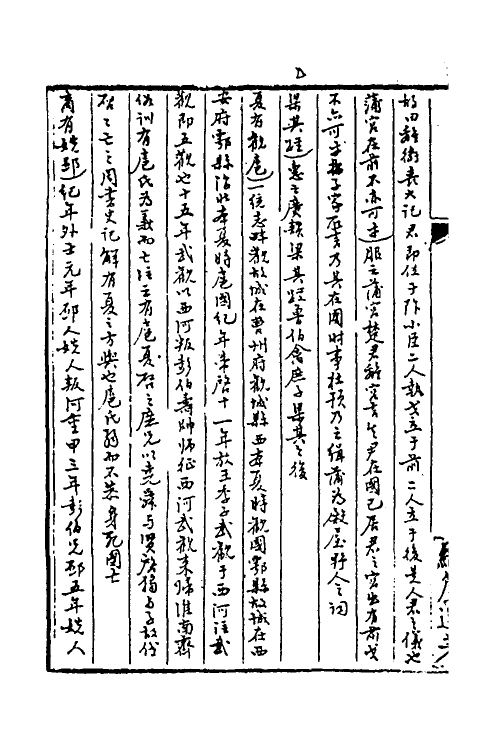 故曰離衛喪大記君即位于阼小臣二人執戈立于前二人立于後是人君之儀也
蒲宮在前不亦可乎 服云蒲宮楚君離宮言令尹在國已居君之宮出有前戈
不亦可乎 子家 言乃其在國時事杜預乃云緝蒲為殿屋 人之詞
梁其踁 惠云廣韻梁其踁魯伯禽庶子梁其之後
夏有觀扈 一统志 觀故城在曹州府觀城縣西本夏時觀國鄠縣故城在西
安府鄠縣治北本夏時扈國紀年帝啓十一年放王季子武觀于西河注武
觀即五觀也十五年武觀以西河叛彭伯壽帥師征西河武觀來歸淮南齊
俗訓有扈氏為義而亡注云有扈夏啓之庶兄以堯舜與賢啓獨與子故伐
啓啓亡之周書史記解有夏之方興也扈氏弱而不恭身死國亡
商有姺邳 紀年外壬元年邳人姺人叛河亶甲三年彭伯克邳五年姺人